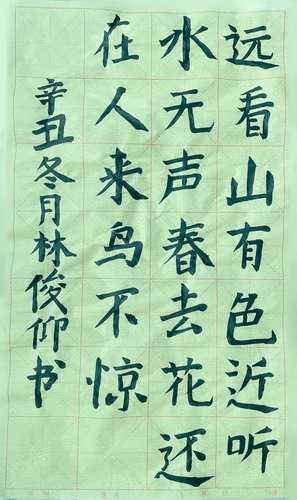 远看山有色近听
水无声春去花还
在人来鸟不惊
辛丑冬月林俊仰书